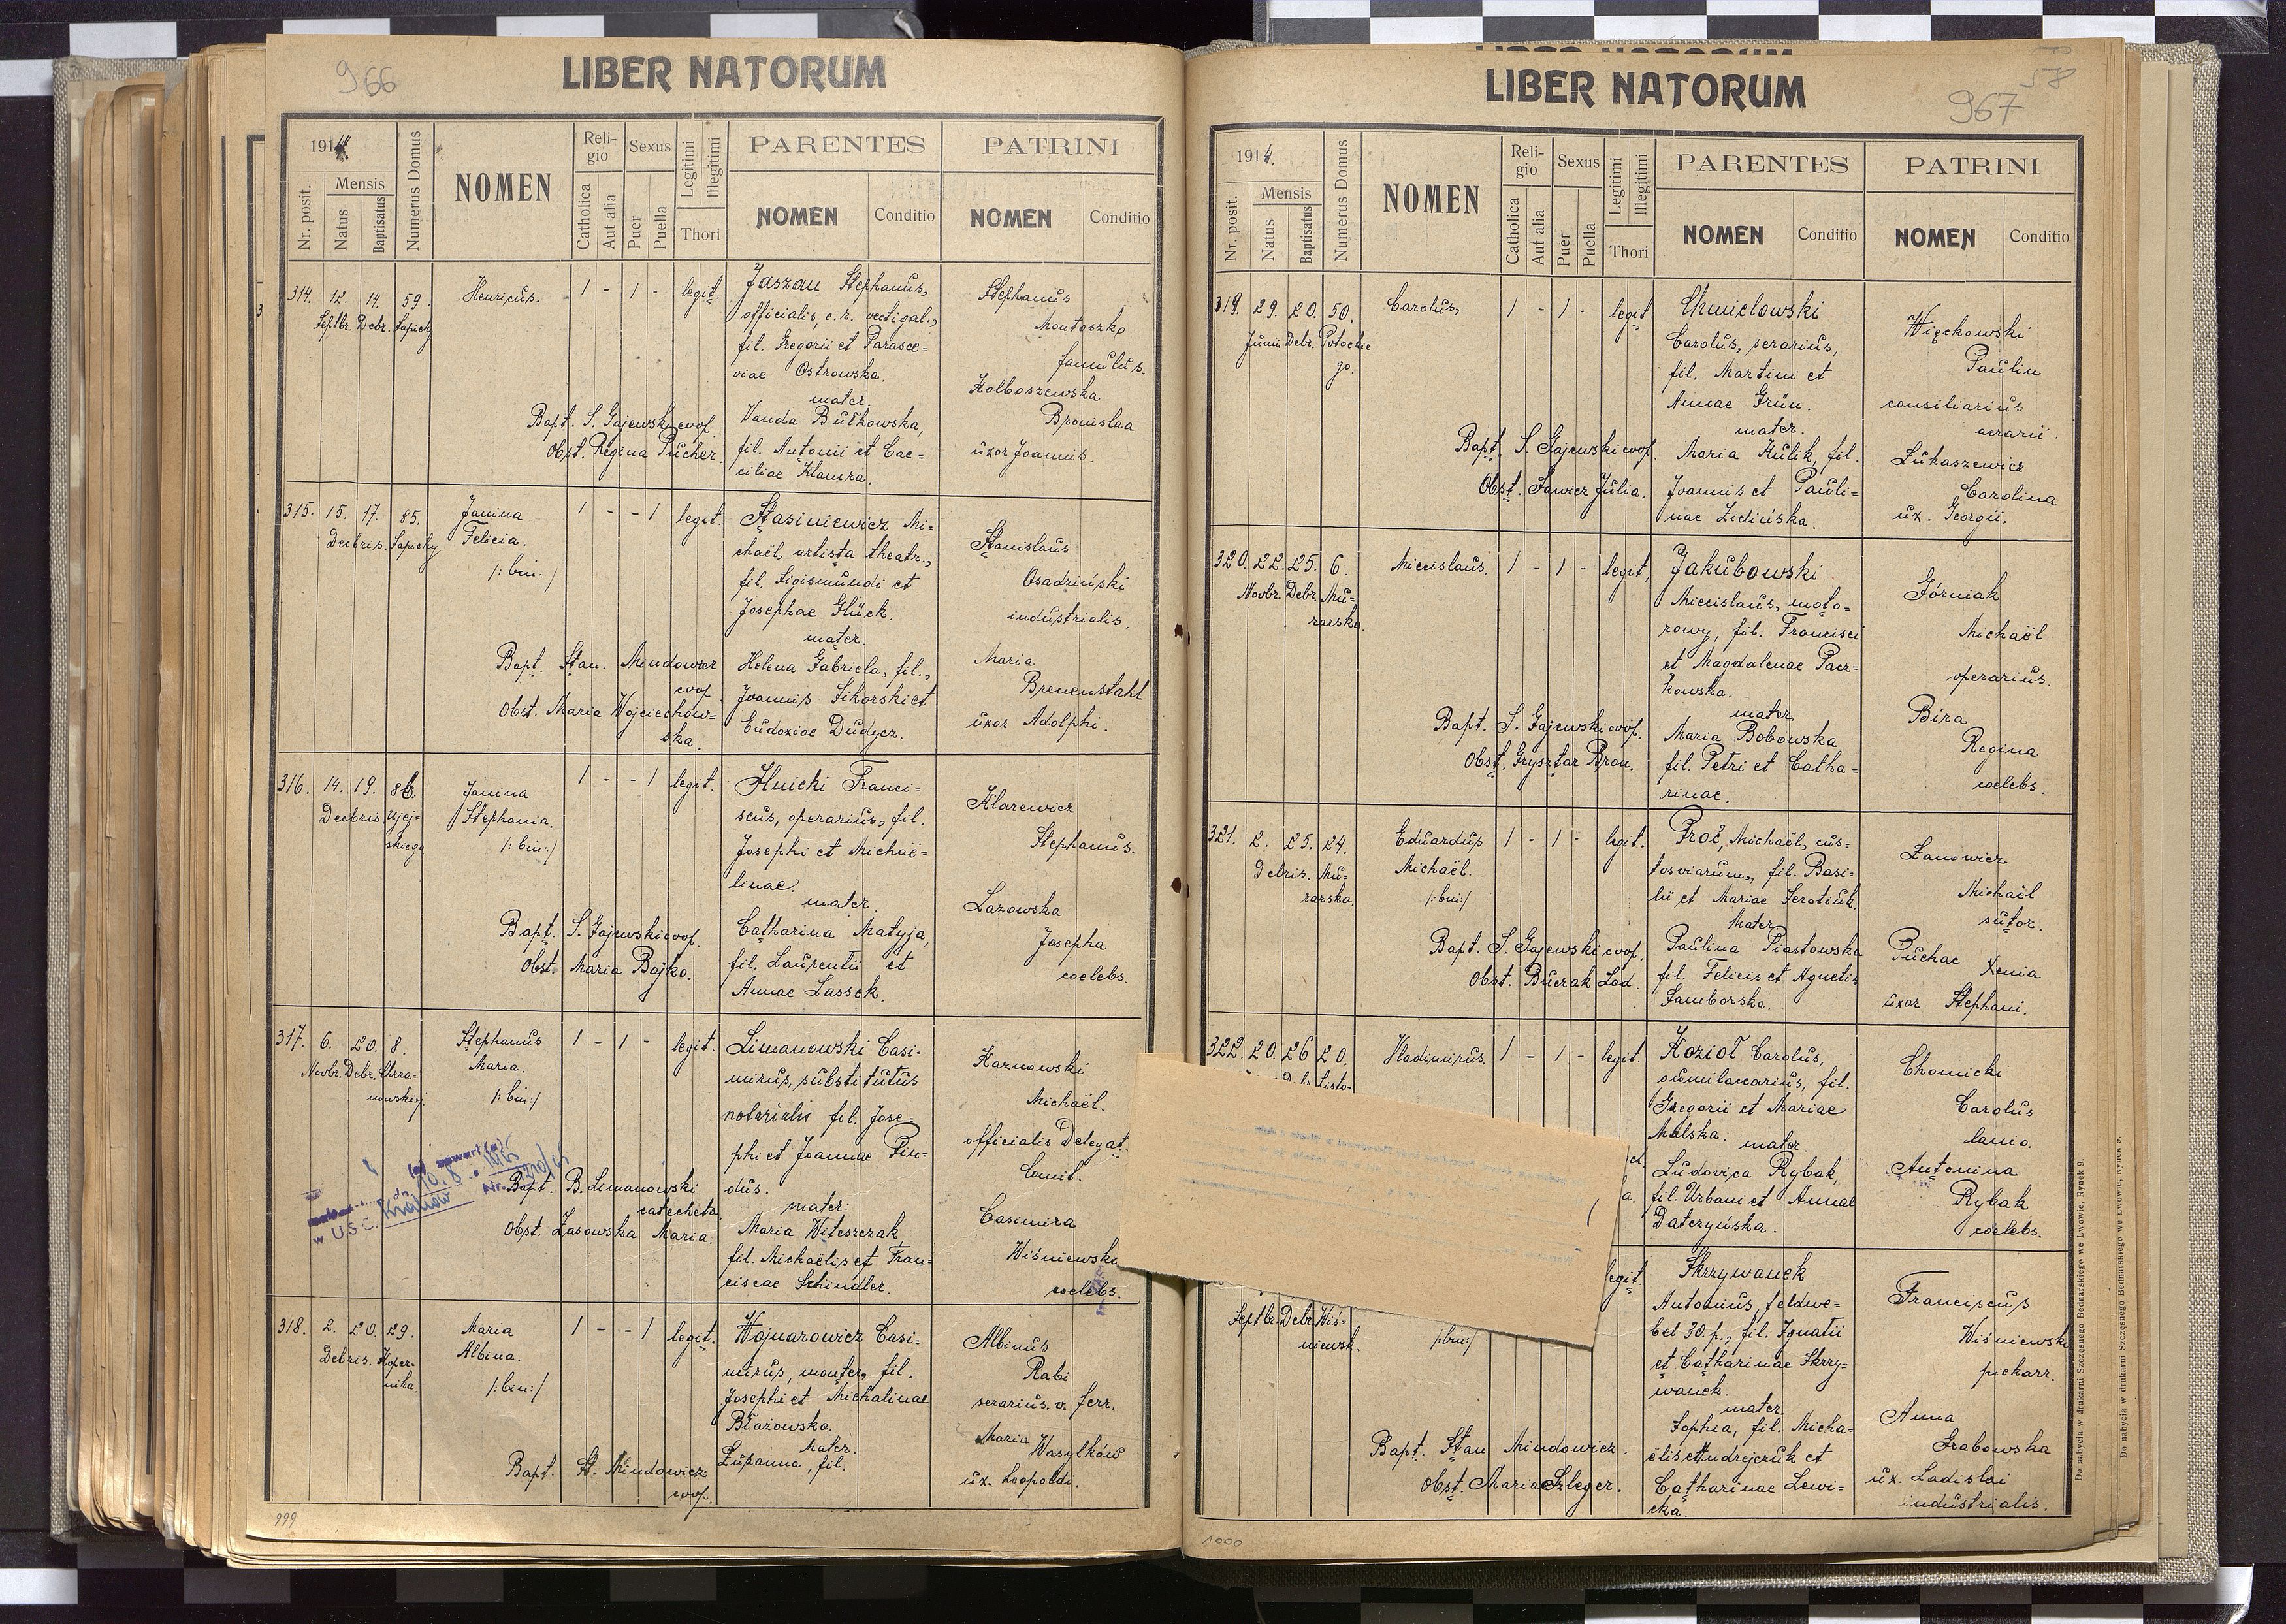 966
LIBER NATORUM
1914.
Nr. posit.
Mensis
Natus
Baptisatus
Numerus Domus
NOMEN
Religio
Catholica
Aut alia
Sexus
Puer
Puella
Legitimi
Illegitimi
Thori
PARENTES
NOMEN
Conditio
PATRINI
NOMEN
Conditio
314. 12. 14. 59.
Septbr. Debr. Sapiehy
Henricus.
1 - 1 - legit.
Jaszan Stephanus,
officialis, c. r. vectigal.,
fil. Gregorii et Parasce=
viae Ostrowska.
mater.
Vanda Butkowska,
fil. Antonii et Cae=
ciliae
Stephanus
famulus.
Kolboszewska
Bronislaa
uxor Joannis.
Bapt. S. Gajewski coop.
Obst. Regina Pücher.
315. 15. 17. 85.
Decbris. Sapiehy
Janina
Felicia.
/: bin :/
1 - - 1 legit.
Stasiniewicz Mi=
chaël, artista theatr.,
fil. Sigismundi et
Josephae Glück.
mater.
Helena Gabriela, fil.,
Joannis Sikorski et
Eudoxiae Dudycz.
Stanislaus
Osadziński
industrialis.
Maria
Brenenstahl
uxor Adolphi.
Bapt. Stan. Mindowicz
coop.
Obst. Maria Wojciechow=
ska.
316. 14. 19. 86.
Decbris Ujej=
skiego
Janina
Stephania.
/: bin :/
1 - - 1 legit.
Hnicki Franci=
scus, operarius, fil.
Josephi et Michaë=
linae.
mater.
Catharina Matyja,
fil. Laurentii et
Annae Lassek.
Klarewicz
Stephanus.
Lazowska
Josepha
coelebs.
Bapt. S. Gajewski coop.
Obst. Maria Bajko.
317. 6. 20. 8.
Novbr. Debr. Chrza=
nowskiej.
Stephanus
Maria.
/: bin :/
1 - 1 - legit.
Limanowski Casi=
mirus, substitutus
notarialis fil. Jose=
phi et Joannae Pin=
dus.
mater:
Maria Witeszczak
fil. Michaëlis et Fran=
ciscae Schindler.
Kaznowski
Michaël.
officialis Delegat.
Comit.
Casimira
Wiśniewska
coelebs.
w USC. Kraków
Bapt. B. Limanowski
catecheta
Obst. Zasowska Maria.
318. 2. 20. 29.
Debris. Koper=
nika.
Maria
Albina.
/: bin :/
1 - - 1 legit.
Wojnarowicz Casi=
mirus, monter, fil.
Josephi et Michalinae
Błażowska.
Mater.
Zuzanna, fil.
Albinus
Rabi
serarius. v. ferr.
Maria
Wasylków
ux. Leopoldi.
Bapt. St. Mindowicz
coop.
999
58
967
LIBER NATORUM
1914.
Nr. posit.
Mensis
Natus
Baptisatus
Numerus Domus
NOMEN
Religio
Catholica
Aut alia
Sexus
Puer
Puella
Legitimi
Illegitimi
Thori
PARENTES
NOMEN
Conditio
PATRINI
NOMEN
Conditio
319. 29. 20. 50.
Junii Debr. Potockie
go.
Carolus,
1 - 1 - legit
Chmielowski
Carolus, serarius,
fil. Martini et
Annae Grün.
mater.
Maria Kulik, fil.
Joannis et Pauli=
nae Zielińska.
Więckowski
Paulin
consiliarius
aerarii.
Łukaszewicz
Carolina
ux. Georgii.
Bapt. S. Gajewski coop.
Obst. Sawicz Julia.
320. 22. 25. 6.
Novbr. Debr. Mu=
rarska.
Miecislaus.
1 - 1 - legit,
Jakubowski
Miecislaus, moto=
rowy, fil. Francisci
et Magdalenae Pacz=
kowska.
mater
Maria Bobowska
fil. Petri et Catha=
rinae.
Górniak
Michaël
operarius.
Bira
Regina
coelebs.
Bapt. S. Gajewski coop.
Obst. Gryształ Bron.
321. 2. 25. 24.
Debris. Mu=
rarska.
Eduardus
Michaël.
/: bin :/
1 - 1 - legit.
Proć, Michaël, cus=
tos viarum, fil. Basi=
lii et Mariae Serotiuk.
Mater.
Paulina Piastowska
fil. Felicis et Agnetis
Samborska.
Zanowicz
Michaël
sutor.
Puchac Xenia
uxor Stephani.
Bapt. S. Gajewski coop.
Obst. Buczak Lad.
322. 20. 26 20.
Debr. Listo=
Vladimirus.
1 - 1 - legit.
Kozioł Carolus,
fil.
Gregorii et Mariae
Malska. mater.
Ludovica Rybak,
fil. Urbani et Annae
Datczyńska.
Chomicki
Carolus
lanio.
Antonina
Rybak
coelebs.
Septbr. Debr. Wiś=
niewsk.
/: bin :/
legit.
Skrzywanek
Antonius, feldwe=
bel 30. p., fil. Ignatii
et Catharinae Skrzy=
wanek.
mater.
Sophia, fil. Micha=
ëlis et Andrejczuk et
Catharinae Lewi=
cka.
Franciscus
Wiśniewski
piekarz.
Anna
Grabowska
ux. Ladislai
industrialis.
Bapt. Stan Mindowicz.
Obst. Maria Szleger.
1000
Do nabycia w drukarni Szczęsnego Bednarskiego we Lwowie, Rynek 9.
Do nabycia w drukarni Szczęsnego Bednarskiego we Lwowie, Rynek 9.